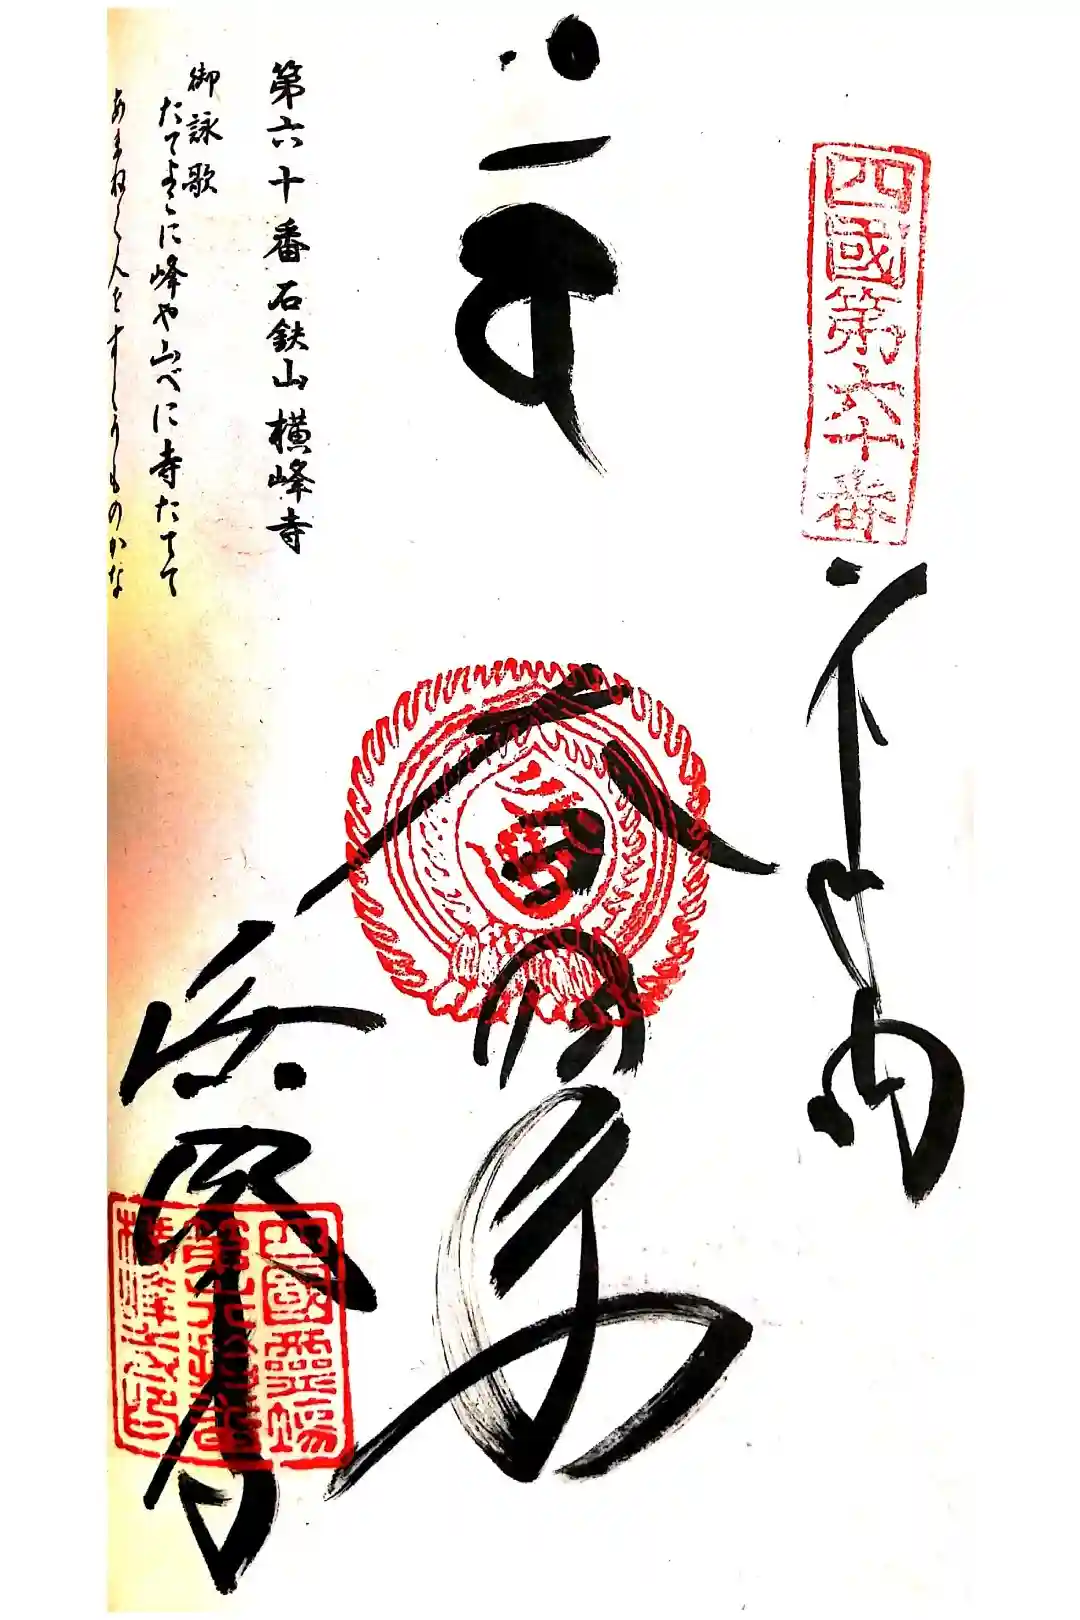 四國第六十番
奉納
大日如来
横峰寺
四國霊場
第六拾番
横峰寺印
第六十番石鉄山横峰寺
御詠歌
たてよこに峰や山べに寺たてて
あまねく人をすくうものかな